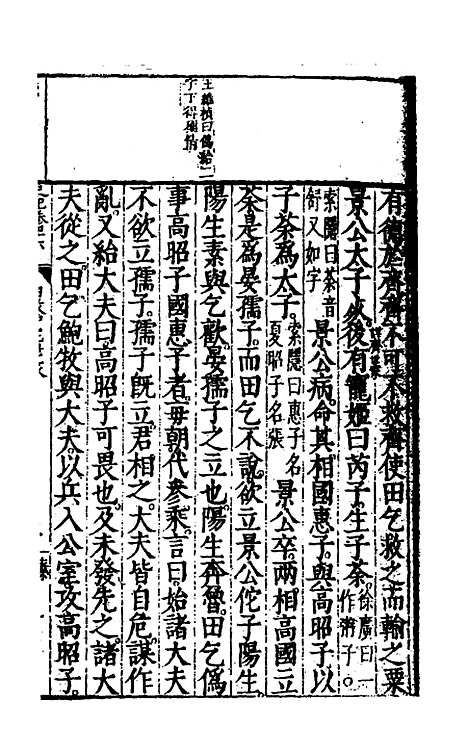 有德於齊齊不可不救齊使田乞救之而輸之粟
景公太子死後有寵姬曰芮子生子荼徐廣曰一作粥子。
索隱曰荼音舒又如字景公病命其相國惠子與高昭子以
子荼為太子索隱曰惠子名夏昭子名張景公卒兩相高國立
荼是為晏孺子而田乞不說欲立景公佗子陽生
陽生素與乞歡晏孺子之立也陽生奔魯田乞偽
事高昭子國惠子者毋朝代參乘言曰始諸大夫
不欲立孺子孺子既立君相之大夫皆自危謀作
亂又紿大夫曰高昭子可畏也及未發先之諸大
夫從之田乞鮑牧與大夫以兵入公室攻高昭子
王維楨曰偽紿二
字下得